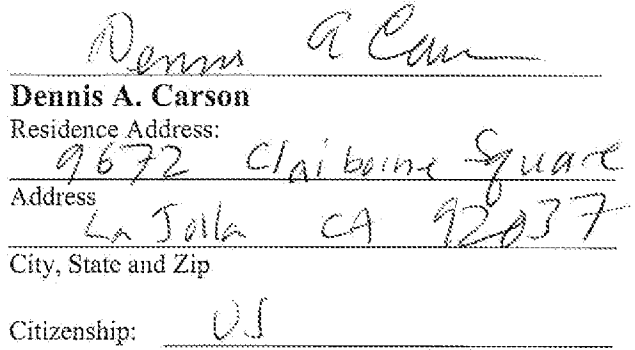 Dennis A Cars
Dennis A. Carson
Residence Address:
9672 Claiborne Square
Address
La Jolla CA 92037
City, State and Zip
Citizenship: US